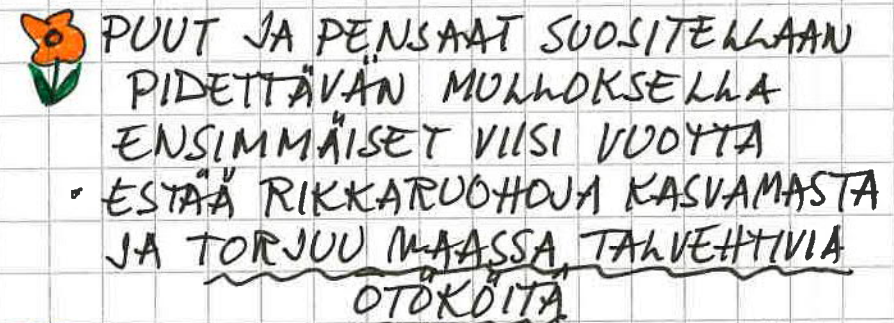 PUUT JA PENSAAT SUOSITELLAAN
PIDETTÄVÄN MULLOKSELLA
ENSIMMÄISET VIISI VUOTTA
• ESTÄÄ RIKKARUOHOJA KASVAMASTA
JA TORJUU MAASSA TALVEHTIVIA
ÖTÖKÖITÄ